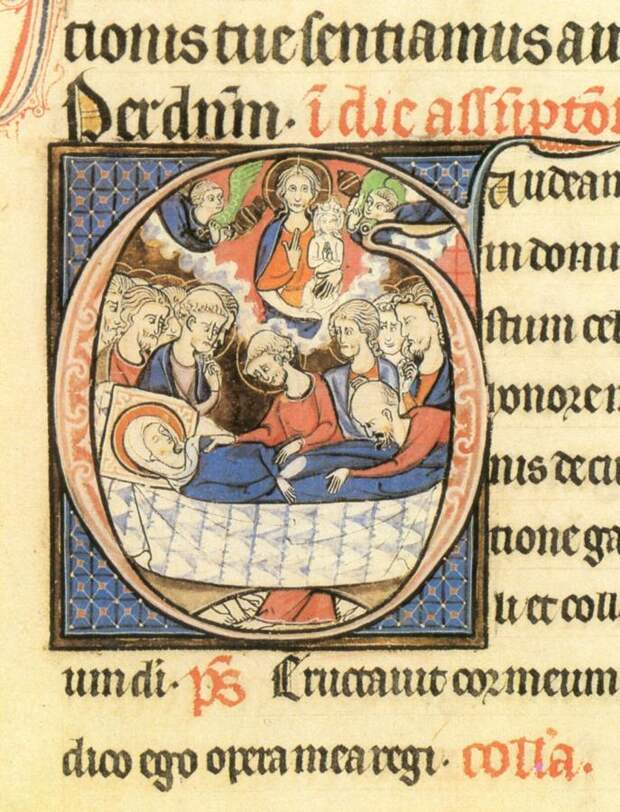 tionis tue sentiamus au
Per dn̄m. ī die assūptō
Gaudeam
in domi
stum cel
honorem
nis de cu
tione ga
li et coll
um di. ps̄ Eructauit cor meum
dico ego opera mea regi. coll̄a.